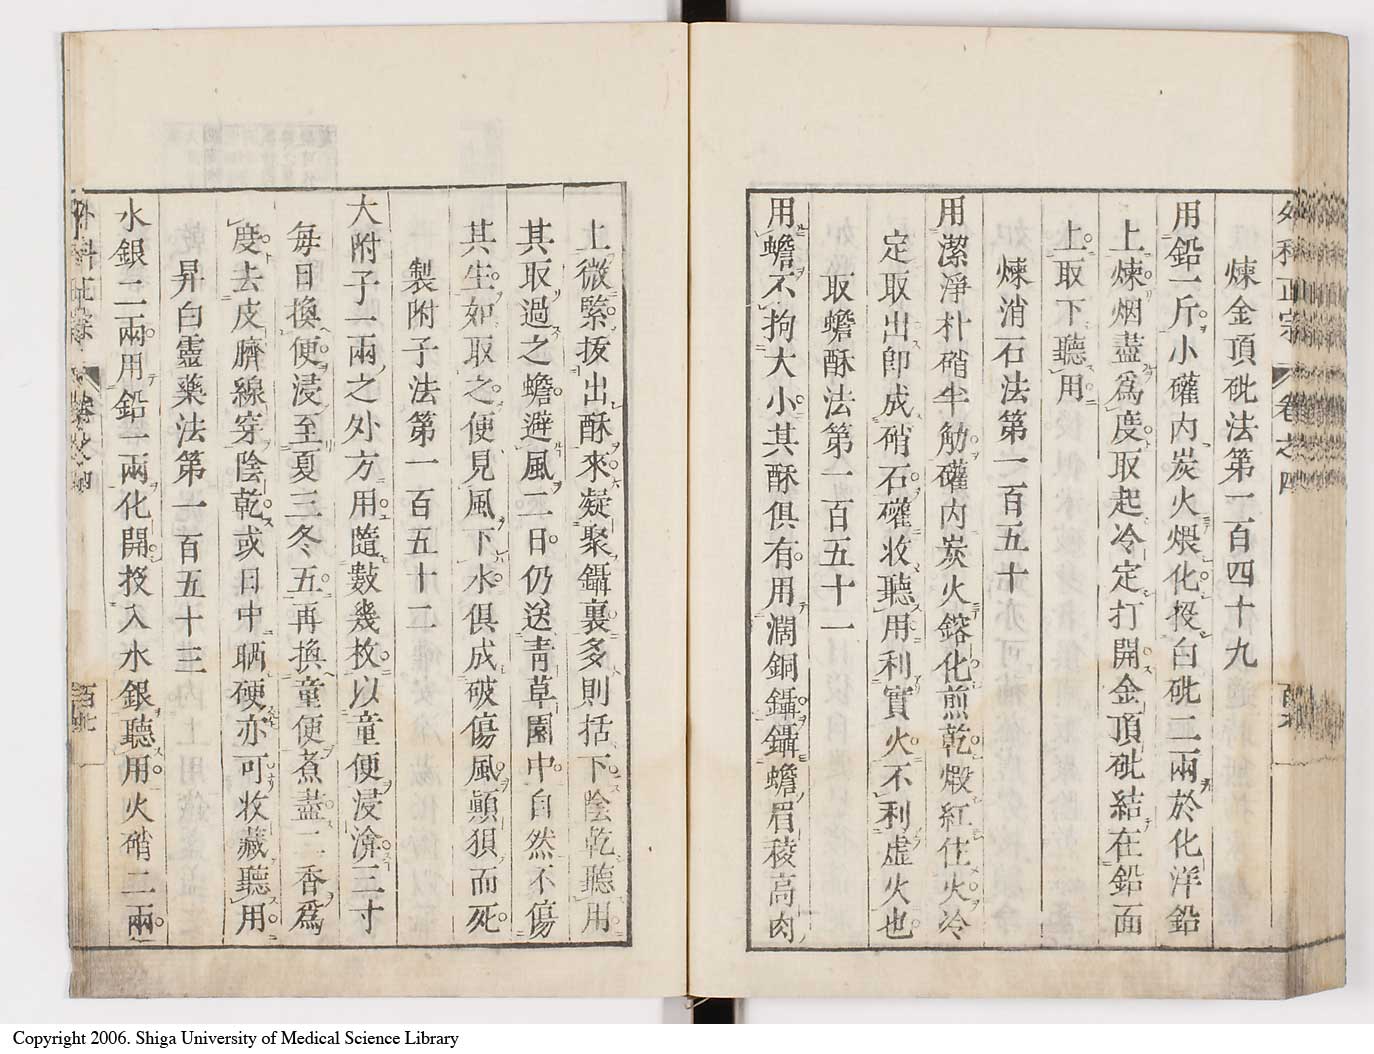 外科正宗 卷之四
煉金頂砒法第一百四十九
用鉛一斤小礶內炭火煨化投白砒二兩於化洋鉛
上煉烟盡爲度取起冷定打開金頂砒結在鉛面
上取下聽用
煉消石法第一百五十
用潔淨朴硝半觔礶內炭火鎔化煎乾煅紅住火冷
定取出卽成硝石礶收聽用利實火不利虛火也
取蟾酥法第一百五十一
用蟾不拘大小其酥俱有用濶銅鑷鑷蟾眉稜高肉
上微緊扳出酥來凝聚鑷裏多則括下陰乾聽用
其取過之蟾避風二日仍送青草園中自然不傷
其生如取之便見風下水俱成破傷風顚狽而死
製附子法第一百五十二
大附子一兩之外方用隨數幾枚以童便浸渰三寸
每日換便浸至夏三冬五再換童便煮盡二香爲
度去皮臍線穿陰乾或日中晒硬亦可收藏聽用
昇白靈藥法第一百五十三
水銀二兩用鉛一兩化開投入水銀聽用火硝二兩
外科正宗 卷之四
Copyright 2006. Shiga University of Medical Science Library